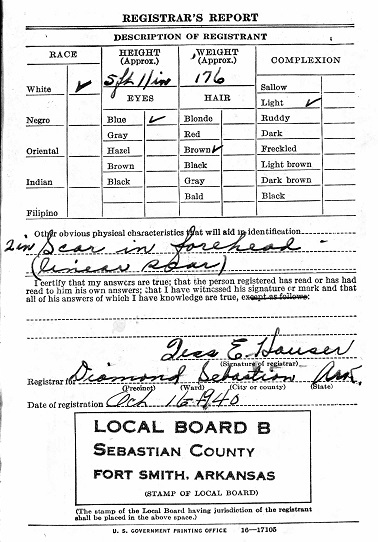 REGISTRAR'S REPORT
DESCRIPTION OF REGISTRANT
RACE HEIGHT (Approx.) WEIGHT (Approx.) COMPLEXION
5 ft 11 in 176
White ✓ Sallow
EYES HAIR Light ✓
Negro Blue ✓ Blonde Ruddy
Gray Red Dark
Oriental Hazel Brown ✓ Freckled
Brown Black Light brown
Indian Black Gray Dark brown
Bald Black
Filipino
Other obvious physical characteristics that will aid in identification
2 in Scar in forehead -
(linear scar)
I certify that my answers are true; that the person registered has read or has had
read to him his own answers; that I have witnessed his signature or mark and that
all of his answers of which I have knowledge are true, except as follows:
E. Hauser
(Signature of registrar)
Registrar for Diamond Sebastian Ark.
(Precinct) (Ward) (City or county) (State)
Date of registration Oct 16-1940
LOCAL BOARD B
SEBASTIAN COUNTY
FORT SMITH, ARKANSAS
(STAMP OF LOCAL BOARD)
(The stamp of the Local Board having jurisdiction of the registrant
shall be placed in the above space.)
U. S. GOVERNMENT PRINTING OFFICE 16—17105